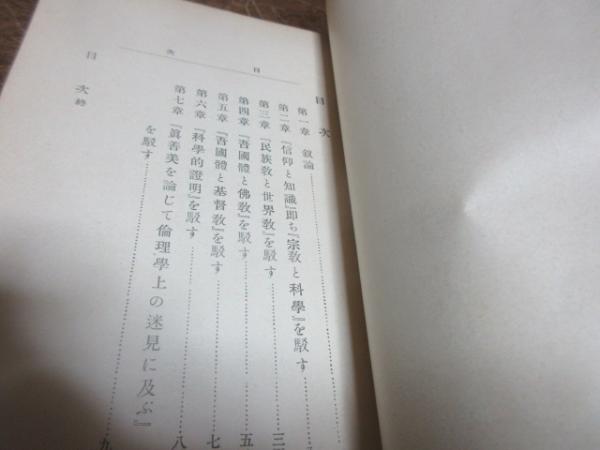 目次
目次
第一章 叙論
第二章 『信仰と知識』即ち『宗敎と科學』を駁す
第三章 『民族敎と世界敎』を駁す 三
第四章 『吾國體と佛敎』を駁す 五
第五章 『吾國體と基督敎』を駁す 七
第六章 『科學的證明』を駁す 八
第七章 『眞善美を論じて倫理學上の迷見に及ぶ』
を駁す 九
目次終